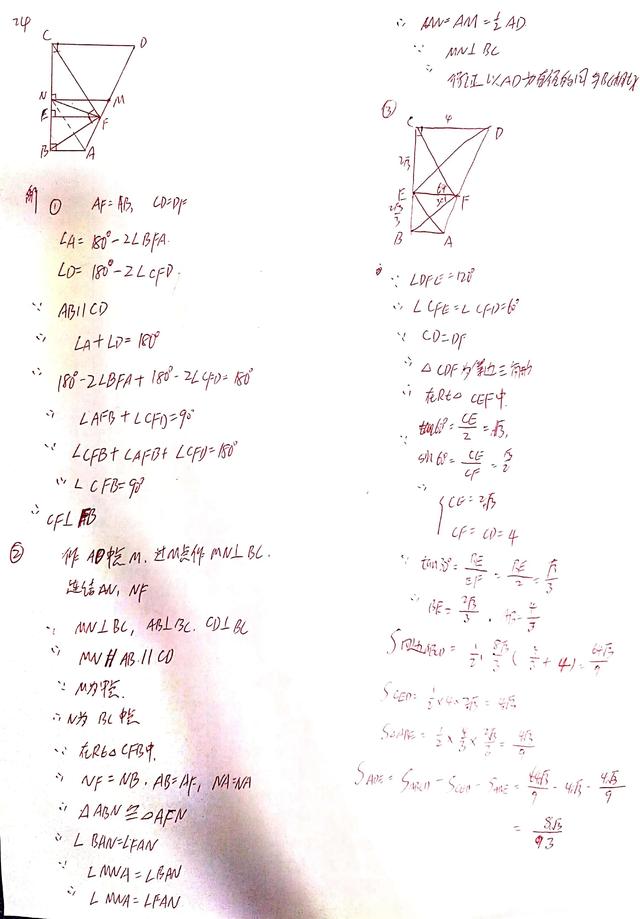 24
C D N M E F B A
解 ① AF=AB, CD=DF
∠A=180°-2∠BFA.
∠D=180°-2∠CFD.
∵ AB∥CD
∴ ∠A+∠D=180°
∴ 180°-2∠BFA+180°-2∠CFD=180°
∴ ∠AFB+∠CFD=90°
∵ ∠CFB+∠AFB+∠CFD=180°
∴ ∠CFB=90°
∴ CF⊥FB
② 作AD中点M.过M点作MN⊥BC.
连结AN, NF
∵ MN⊥BC, AB⊥BC. CD⊥BC
∴ MN∥AB∥CD
∵ M为中点.
∴ N为BC中点
∴ 在Rt△CFB中.
∴ NF=NB. AB=AF, NA=NA
∴ △ABN≌△AFN
∴ ∠BAN=∠FAN
∵ ∠MNA=∠BAN
∴ ∠MNA=∠FAN
∴ MN=AM=½AD
∵ MN⊥BC
∴ 得证以AD为直径的圆与BC相切
③
C 4 D 2√3 E F 2√3/3 B A
∵ ∠DFE=120°
∴ ∠CFE=∠CFD=60°
∵ CD=DF
∴ △CDF为等边三角形
∴ 在Rt△CEF中.
∵ tan60°=CE/2=√3,
sin60°=CE/CF=√3/2
∴ { CE=2√3
CF=CD=4
∵ tan30°=BE/EF=BE/2=√3/3
∴ BE=2√3/3.
S四边形ABCD=½·8√3/3(4/3+4)=64√3/9
S△CED=½×4×2√3=4√3
S△ABE=½×4/3×2√3/3=4√3/9
S△ADE=SABCD-SCED-SABE=64√3/9-4√3-4√3/9
=8√3/3